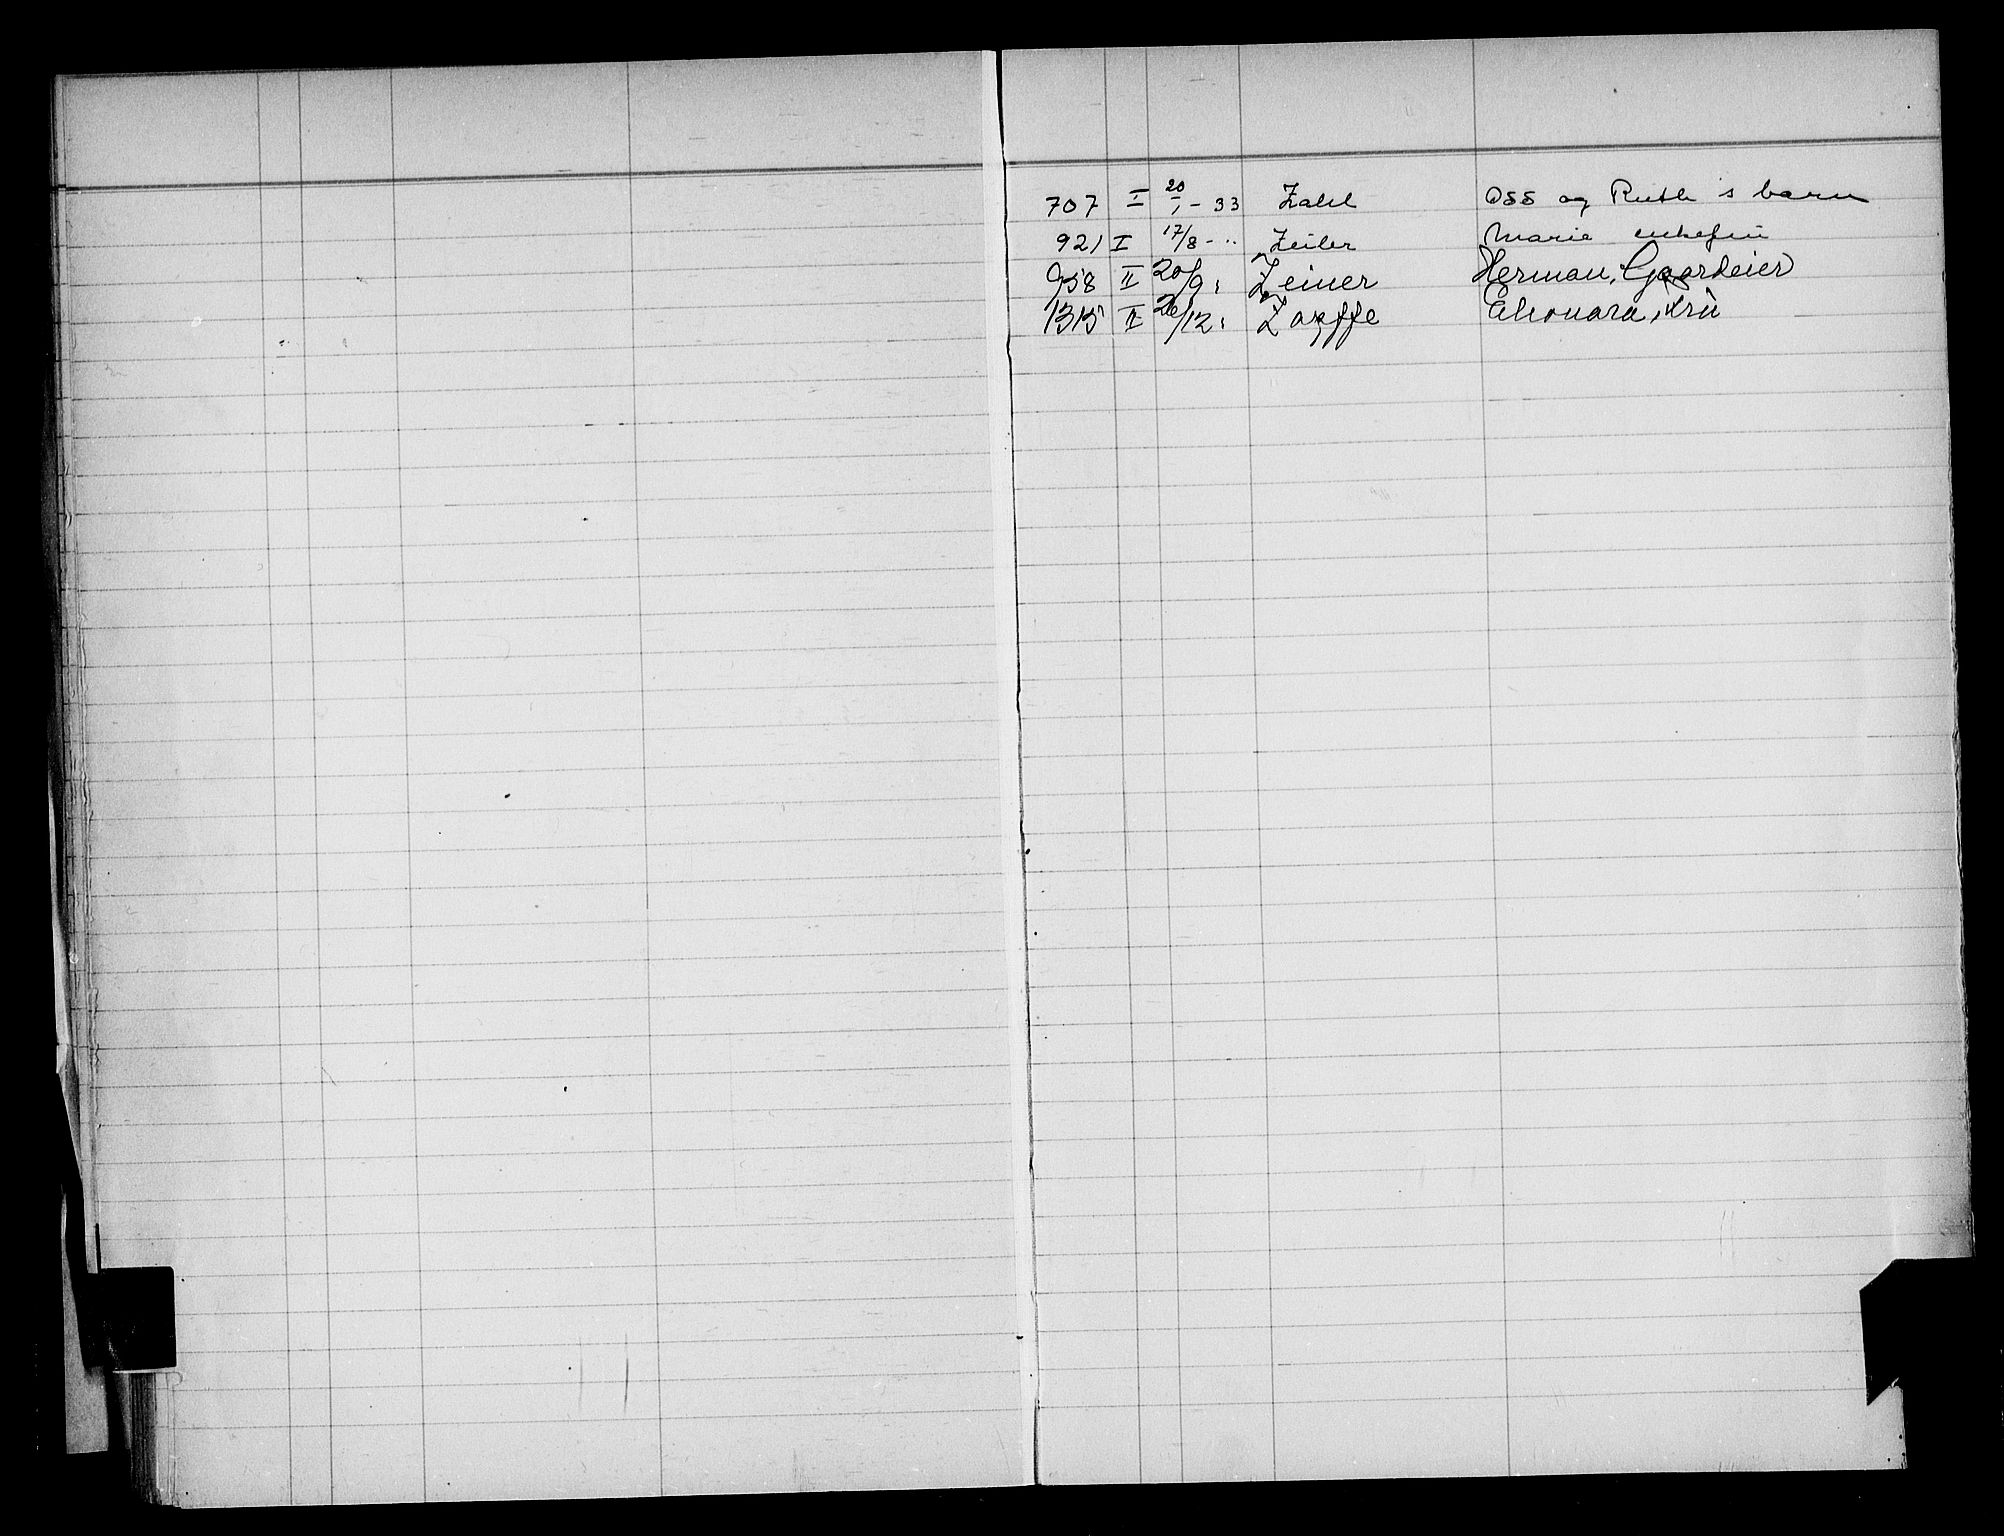 707 I 20/1 - 33 Zahl Oss og Ruth s barn
921 I 17/8 - " Zeiler Marie enkefru
958 II 20/9 " Zeiner Herman, Gaardeier
1315 II 26/12 " Zapffe Eleonora, fru